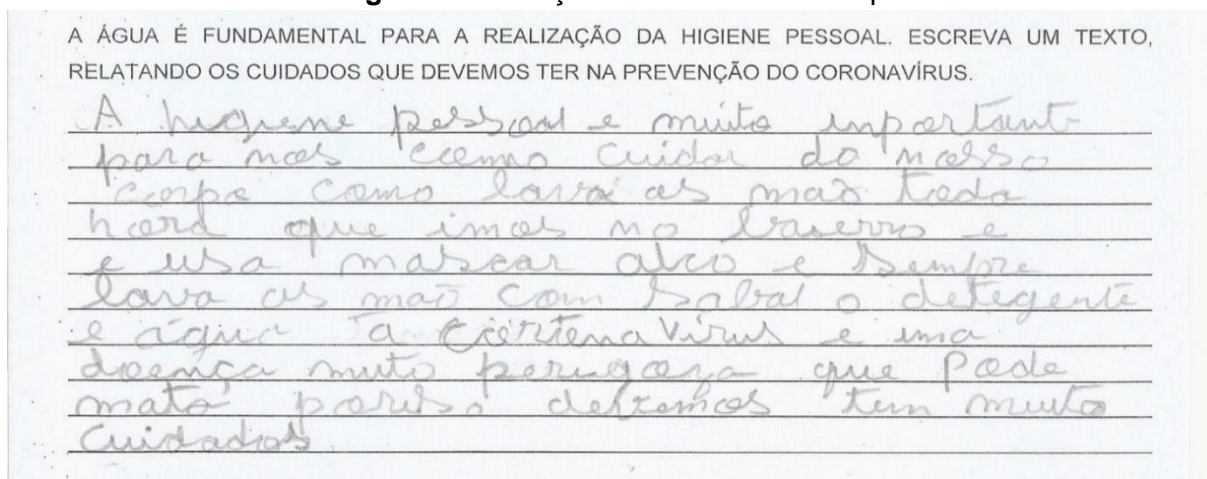 A ÁGUA É FUNDAMENTAL PARA A REALIZAÇÃO DA HIGIENE PESSOAL. ESCREVA UM TEXTO,
RELATANDO OS CUIDADOS QUE DEVEMOS TER NA PREVENÇÃO DO CORONAVÍRUS.
A higiene pessoal e muito inportant
para nos como cuidar do nosso
corpo como lava as mão toda
hora que imos no baserro e
e usa mascar alco e sempre
lava as mão com sabal o detegente
e água a Virus e uma
doença muto perigoza que Pode
mata poriso devemos tem muito
cuidados